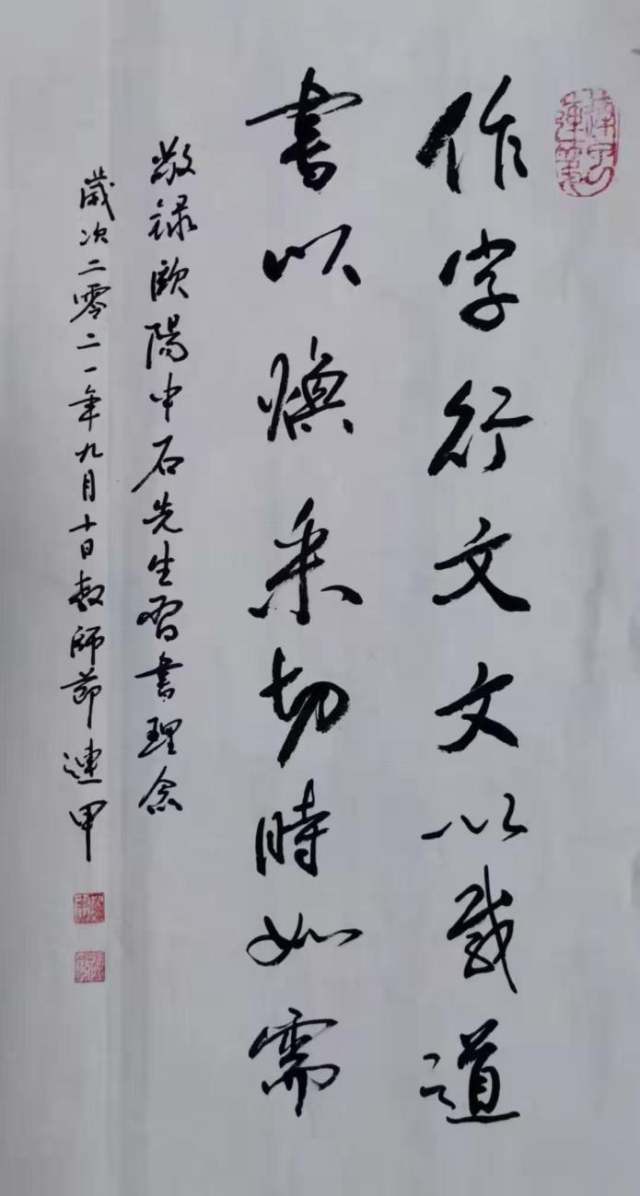 作字行文文以载道
書以焕采切時如需
敬録欧陽中石先生習書理念
歲次二零二一年九月十日教師節連甲